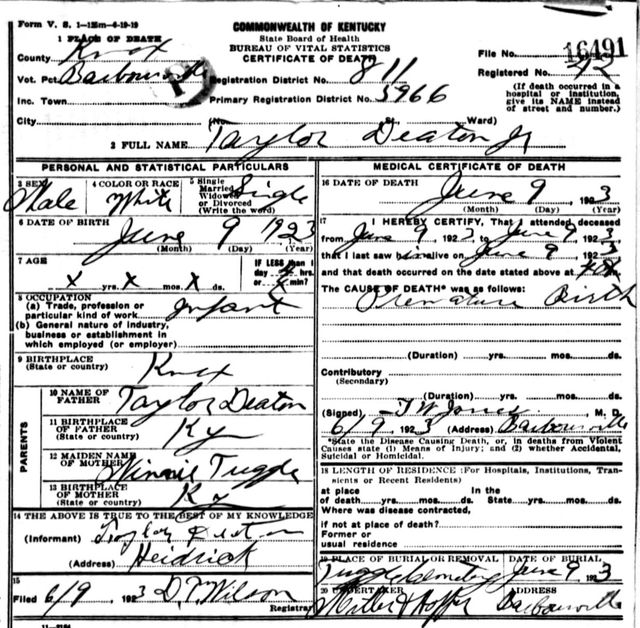 Form V. S. 1-125m-6-19-19
COMMONWEALTH OF KENTUCKY
State Board of Health
BUREAU OF VITAL STATISTICS
CERTIFICATE OF DEATH
1 PLACE OF DEATH
County Knox
File No. 16491
Vot. Pct. Barbourville Registration District No. 811
Registered No. 92
Inc. Town Primary Registration District No. 5966
(If death occurred in a hospital or institution, give its NAME instead of street and number.)
City (No. St. Ward)
2 FULL NAME Taylor Deaton Jr
PERSONAL AND STATISTICAL PARTICULARS
3 SEX Male
4 COLOR OR RACE White
5 Single Married Widowed or Divorced (Write the word) Single
6 DATE OF BIRTH June 9 1923
(Month) (Day) (Year)
7 AGE
x yrs. x mos. x ds.
IF LESS than 1 day hrs. or min?
8 OCCUPATION
(a) Trade, profession or particular kind of work Infant
(b) General nature of industry, business or establishment in which employed (or employer)
9 BIRTHPLACE (State or country) Knox
PARENTS
10 NAME OF FATHER Taylor Deaton
11 BIRTHPLACE OF FATHER (State or country) Ky
12 MAIDEN NAME OF MOTHER Minnie Tuggle
13 BIRTHPLACE OF MOTHER (State or country) Ky
14 THE ABOVE IS TRUE TO THE BEST OF MY KNOWLEDGE
(Informant) Taylor Deaton
(Address) Heidrick
15
Filed 6/9 1923 D. T. Wilson
Registrar
11-2184
MEDICAL CERTIFICATE OF DEATH
16 DATE OF DEATH June 9 1923
(Month) (Day) (Year)
17 I HEREBY CERTIFY, That I attended deceased
from June 9, 1923 to June 9, 1923
that I last saw him alive on June 9, 1923
and that death occurred on the date stated above at m.
The CAUSE OF DEATH* was as follows:
Premature Birth
(Duration) yrs. mos. ds.
Contributory
(Secondary)
(Duration) yrs. mos. ds.
(Signed) T W Jones M. D.
6/9 1923 (Address) Barbourville
*State the Disease Causing Death, or, in deaths from Violent Causes state (1) Means of Injury; and (2) whether Accidental, Suicidal or Homicidal.
18 LENGTH OF RESIDENCE (For Hospitals, Institutions, Transients or Recent Residents)
at place of death yrs. mos. ds. In the State yrs. mos. ds.
Where was disease contracted,
if not at place of death?
Former or usual residence
19 PLACE OF BURIAL OR REMOVAL DATE OF BURIAL
Tuggle Cemetery June 9 1923
20 UNDERTAKER ADDRESS
Miller & Hopper Barbourville